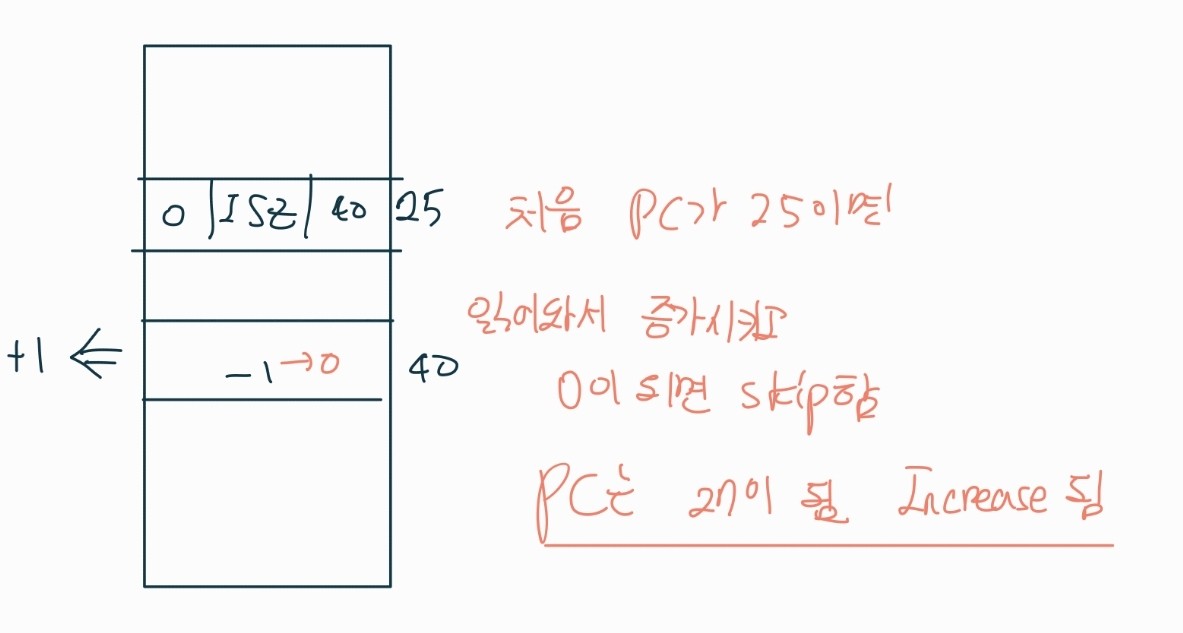 0 | ISZ | 40 25 처음 PC가 25이면
읽어와서 증가시키고
+1 ⇐ -1 → 0 40
0이 되면 skip함
PC는 27이 됨 Increase 됨